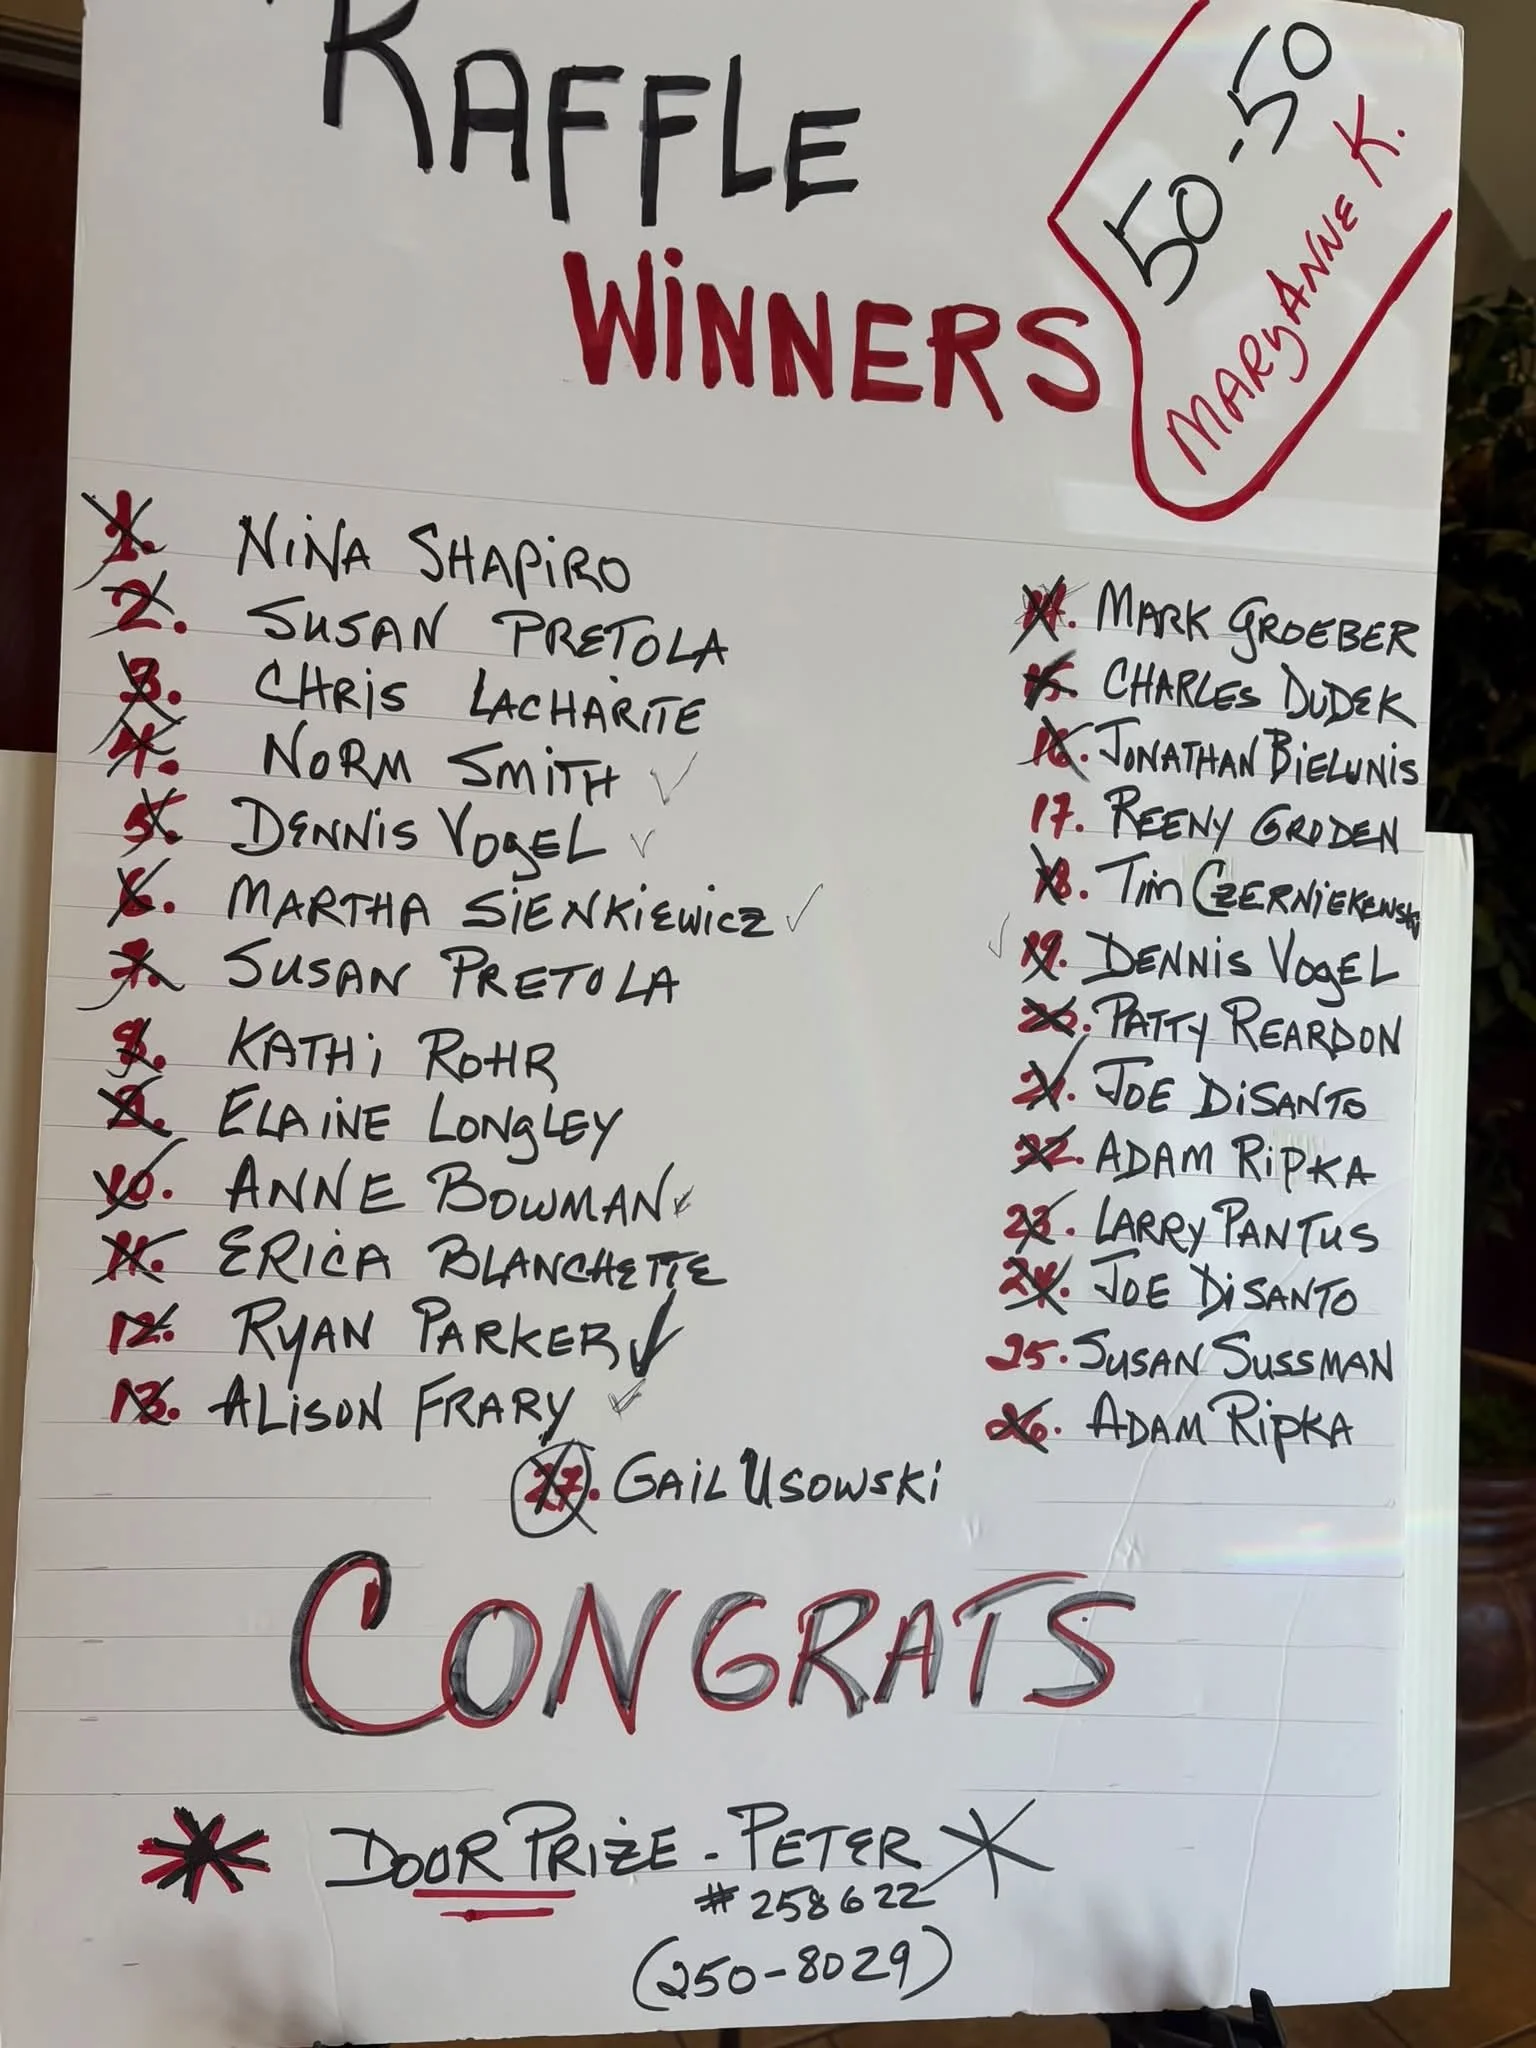 RAFFLE
WINNERS
50-50
MARYANNE K.
1. NINA SHAPIRO
2. SUSAN PRETOLA
3. CHRIS LACHARITE
4. NORM SMITH ✓
5. DENNIS VOGEL ✓
6. MARTHA SIENKIEWICZ ✓
7. SUSAN PRETOLA
8. KATHI ROHR
9. ELAINE LONGLEY
10. ANNE BOWMAN ✓
11. ERICA BLANCHETTE
12. RYAN PARKER ✓
13. ALISON FRARY ✓
14. MARK GROEBER
15. CHARLES DUDEK
16. JONATHAN BIELUNIS
17. REENY GRODEN
18. TIM CZERNIEKEWSKI
✓ 19. DENNIS VOGEL
20. PATTY REARDON
21. JOE DISANTO
22. ADAM RIPKA
23. LARRY PANTUS
24. JOE DISANTO
25. SUSAN SUSSMAN
26. ADAM RIPKA
27. GAIL USOWSKI
CONGRATS
* DOOR PRIZE - PETER *
#258622
(250-8029)